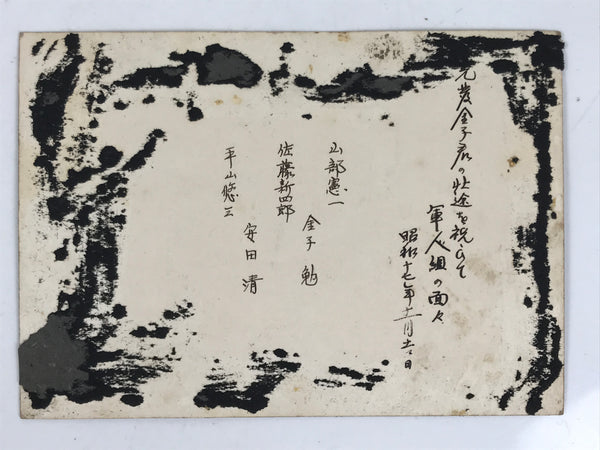 金子君の壮途を祝して
軍人組の面々
昭和十七年十一月十一日
山部憲一
金子勉
佐藤新四郎
安田清
平山悠三